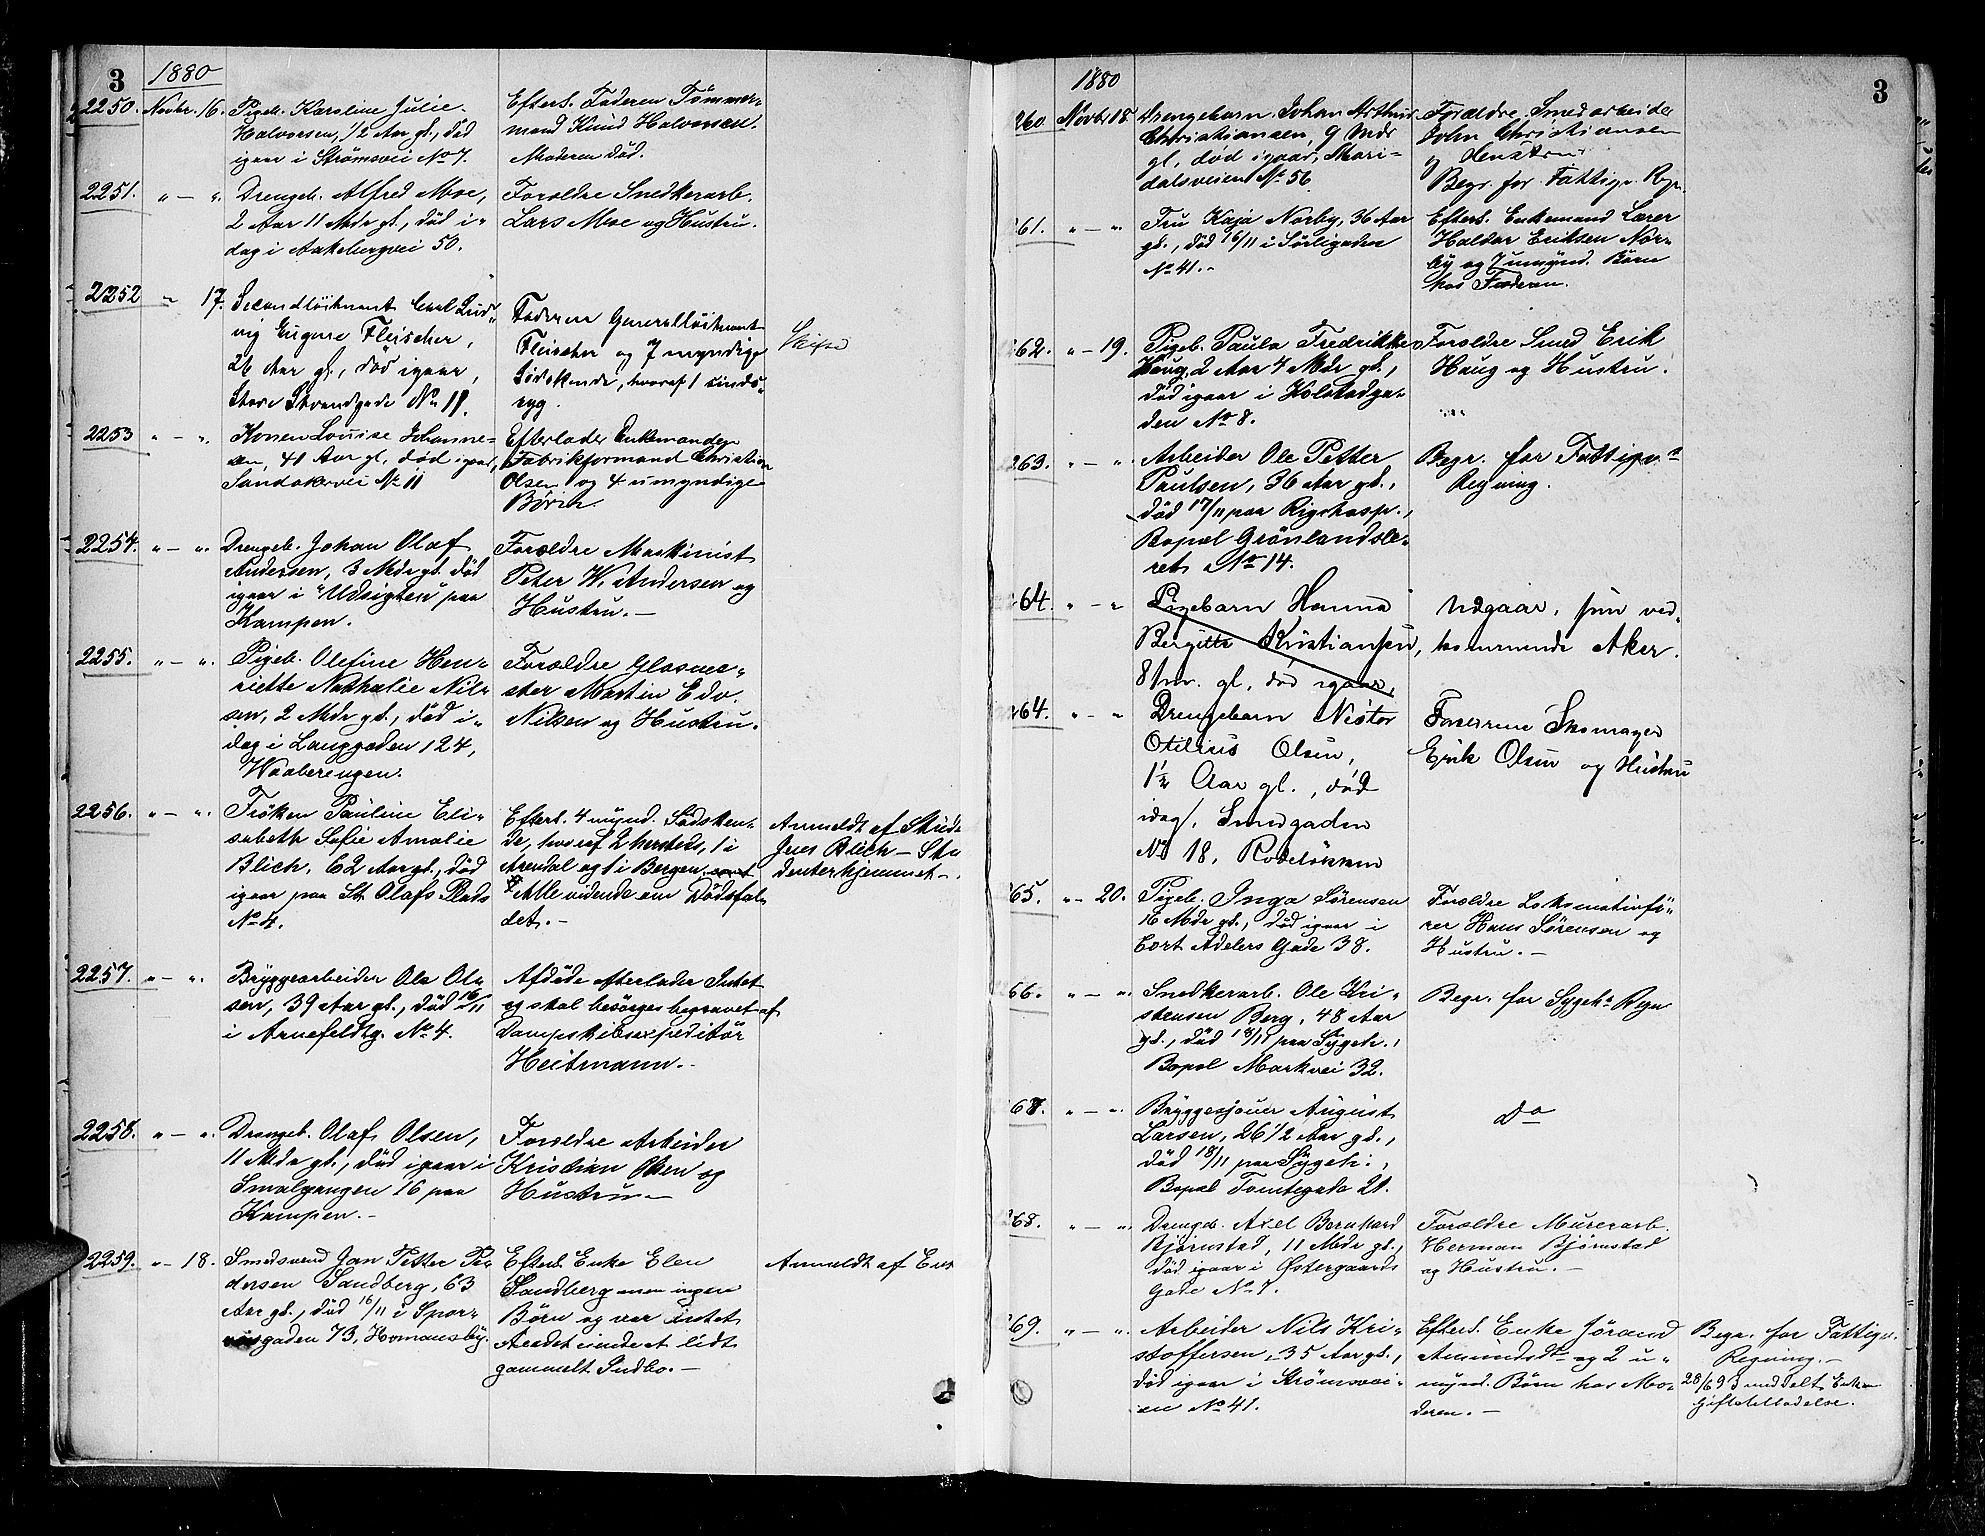 3
1880
2250. Novbr. 16. Pigeb. Karoline Julie Halvorsen, 1/2 Aar gl., död igaar i Strömsvei No 7.
Efterl. Faderen Tömmermand Knud Halvorsen. Moderen död.
2251. " — " Drengeb. Alfred Moe, 2 Aar 11 Mdr gl., död idag i Aakebergvei 50.
Forældre Snedkerarb. Lars Moe og Hustru.
2252 " 17. Secondlöitnant Carl Ludvig Eugene Fleischer, 26 Aar gl., död igaar, Store Strandgade No 11.
Faderen Generallöitnant Fleischer og 7 myndige Södskende, hvoraf 1 sindssyg.
Skifte
2253 " — " Konen Louise Johannesen, 41 Aar gl, död igaar, Sandakervei No 11
Efterlader Enkemanden Fabrikformand Christian Olsen og 4 umyndige Börn.
2254. " — " Drengeb. Johan Olaf Andersen, 3 Mdr gl. död igaar i "Udsigten" paa Kampen.
Forældre Maskinist Peter W. Andersen og Hustru. —
2255. " — " Pigeb. Olefine Henriette Nathalie Nilsen, 2 Mdr gl., död idag i Langgaden 124, Waalerengen.
Forældre Glasmester Martin Edv. Nilsen og Hustru.
2256. " — " Fröken Pauline Elisabeth Sofie Amalie Blich, 62 Aar gl., död igaar paa St. Olafs Plads No 4.
Efterl. 4 mynd. Södskende, hvoraf 2 hersteds, 1 i Arendal og 1 i Bergen. Alle vidende om Dödsfaldet. —
Anmeldt af Stud. Blich — Studenterhjemmet —.
2257. " — " Bryggearbeider Ole Olsen, 39 Aar gl., död 16/11 i Arnefeldtg. No 4.
Afdöde efterlader Intet og skal besörges begravet af Dampskibsexpeditör Heitmann. —
2258. " — " Drengeb. Olaf Olsen, 11 Mdr gl., död igaar i Smalgangen 16 paa Kampen. —
Forældre Arbeider Kristian Olsen og Hustru —
2259. " — 18. Smedsvend Jan Petter Pedersen Sandberg, 63 Aar gl., död 16/11 i Sporveisgaden 73, Homansby.
Efterl. Enke Elen Sandberg men ingen Börn og var intet Andet eiende et lidt gammelt Indbo. —
Anmeldt af Enk
3
1880
260 Novbr 18. Drengebarn Johan Arthur Christiansen, 9 Mdr gl., död igaar, Maridalsveien No 56
Forældre Smedarbeider John Christiansen og Hustru
Begr. for Fattigv. Rgn.
261. " — " Fru Kaja Norby, 36 Aar gl., död 16/11 i Sörligaden No 41. —
Efterl. Enkemand Lærer Haldor Eriksen Norby og 7 umynd. Börn hos Faderen.
262. " — 19. Pigeb. Paula Fredrikke Haug, 2 Aar 4 Mdr gl., död igaar i Kolstadgaden No 8.
Forældre Smed Erik Haug og Hustru.
263. " — " Arbeider Ole Petter Paulsen, 36 Aar gl., död 17/11 paa Rigshosp., Bopæl Grönlandsleret No 14.
Begr. for Fattigv.s Regning.
264. " — " Pigebarn Hanna Bergitte Kristiansen, 8 Mdr. gl, död igaar,
Udgaar, som vedkommende Aker.
264. " — " Drengebarn Nistor Otilius Olsen, 1 1/2 Aar gl., död idag, Smedgaden No 18, Rodelökken
Forældrene Skomager Erik Olsen og Hustru
65. " — 20. Pigeb. Inga Sørensen 16 Mdr gl., död igaar i Cort Adelers Gade 38.
Forældre Lokomotivförer Hans Sørensen og Hustru. —
66. " — " Snedkerarb. Ole Kristensen Berg, 48 Aar gl., död 18/11 paa Sygeh., Bopæl Markvei 32.
Begr. for Sygeh.s Rgn
67. " — " Bryggesjouer August Larsen, 26 1/2 Aar gl., död 18/11 paa Sygeh., Bopæl Tomtegade 21.
Do
268. " — " Drengeb. Axel Bernhard Bjørnstad, 11 Mdr gl., död igaar i Østergaards Gade No 7.
Forældre Murerarb. Herman Bjørnstad og Hustru. —
269. " — " Arbeider Nils Kristoffersen, 35 Aar gl., död igaar i Strömsveien No 41.
Efterl. Enke Jörand Amundsdtr og 2 umynd. Börn hos Moderen. —
Begr. for Fattigv. Regning. —
28/6 93 meddelt Enken Giftetilladelse.